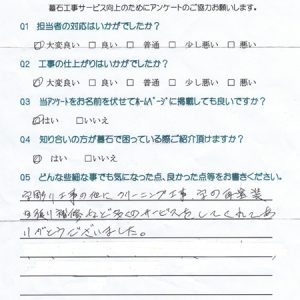 墓石工事サービス向上のためにアンケートのご協力お願いします。
Q1 担当者の対応はいかがでしたか？
☑大変良い □良い □普通 □少し悪い □悪い
Q2 工事の仕上がりはいかがでしたか？
☑大変良い □良い □普通 □少し悪い □悪い
Q3 当アンケートをお名前を伏せてホームページに掲載しても良いですか？
☑はい □いいえ
Q4 知り合いの方が墓石で困っている際ご紹介頂けますか？
☑はい □いいえ
Q5 どんな些細な事でも気になった点、良かった点等をお書きください。
字彫り工事の他に クリーニング工事 字の再塗装
目張り補修など多くのサービスをしてくれてあ
りがとうございました。